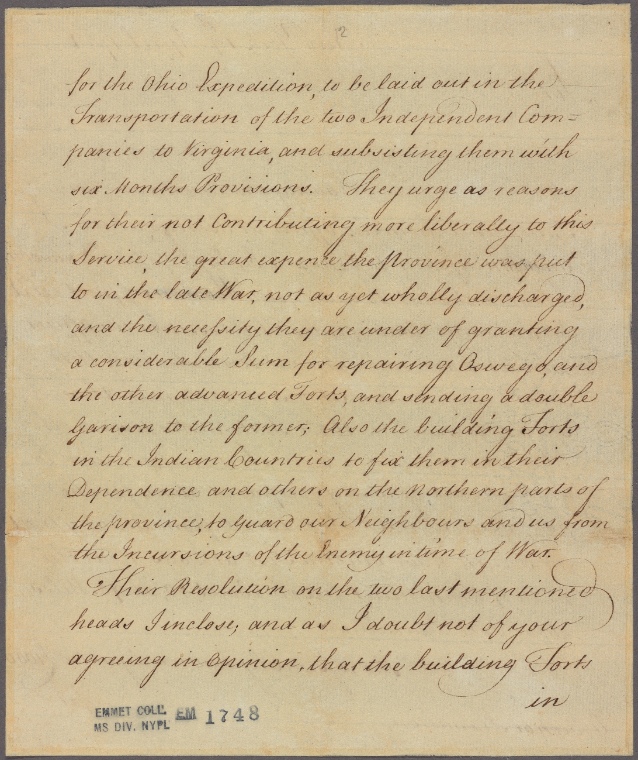 2
for the Ohio Expedition, to be laid out in the
Transportation of the two Independent Com=
panies to Virginia, and subsisting them with
six Months Provisions. They urge as reasons
for their not Contributing more liberally to this
Service, the great expence the Province was put
to in the late War, not as yet wholly discharged,
and the necessity they are under of granting
a considerable Sum for repairing Oswego, and
the other advanced Forts, and sending a double
Garison to the former; Also the building Forts
in the Indian Countries to fix them in their
Dependence, and others on the Northern parts of
the province, to guard our Neighbours and us from
the Incursions of the Enemy in time of War.
Their Resolution on the two last mentioned
heads I inclose, and as I doubt not of your
agreeing in Opinion, that the building Forts
in
EMMET COLL. EM 1748
MS DIV. NYPL